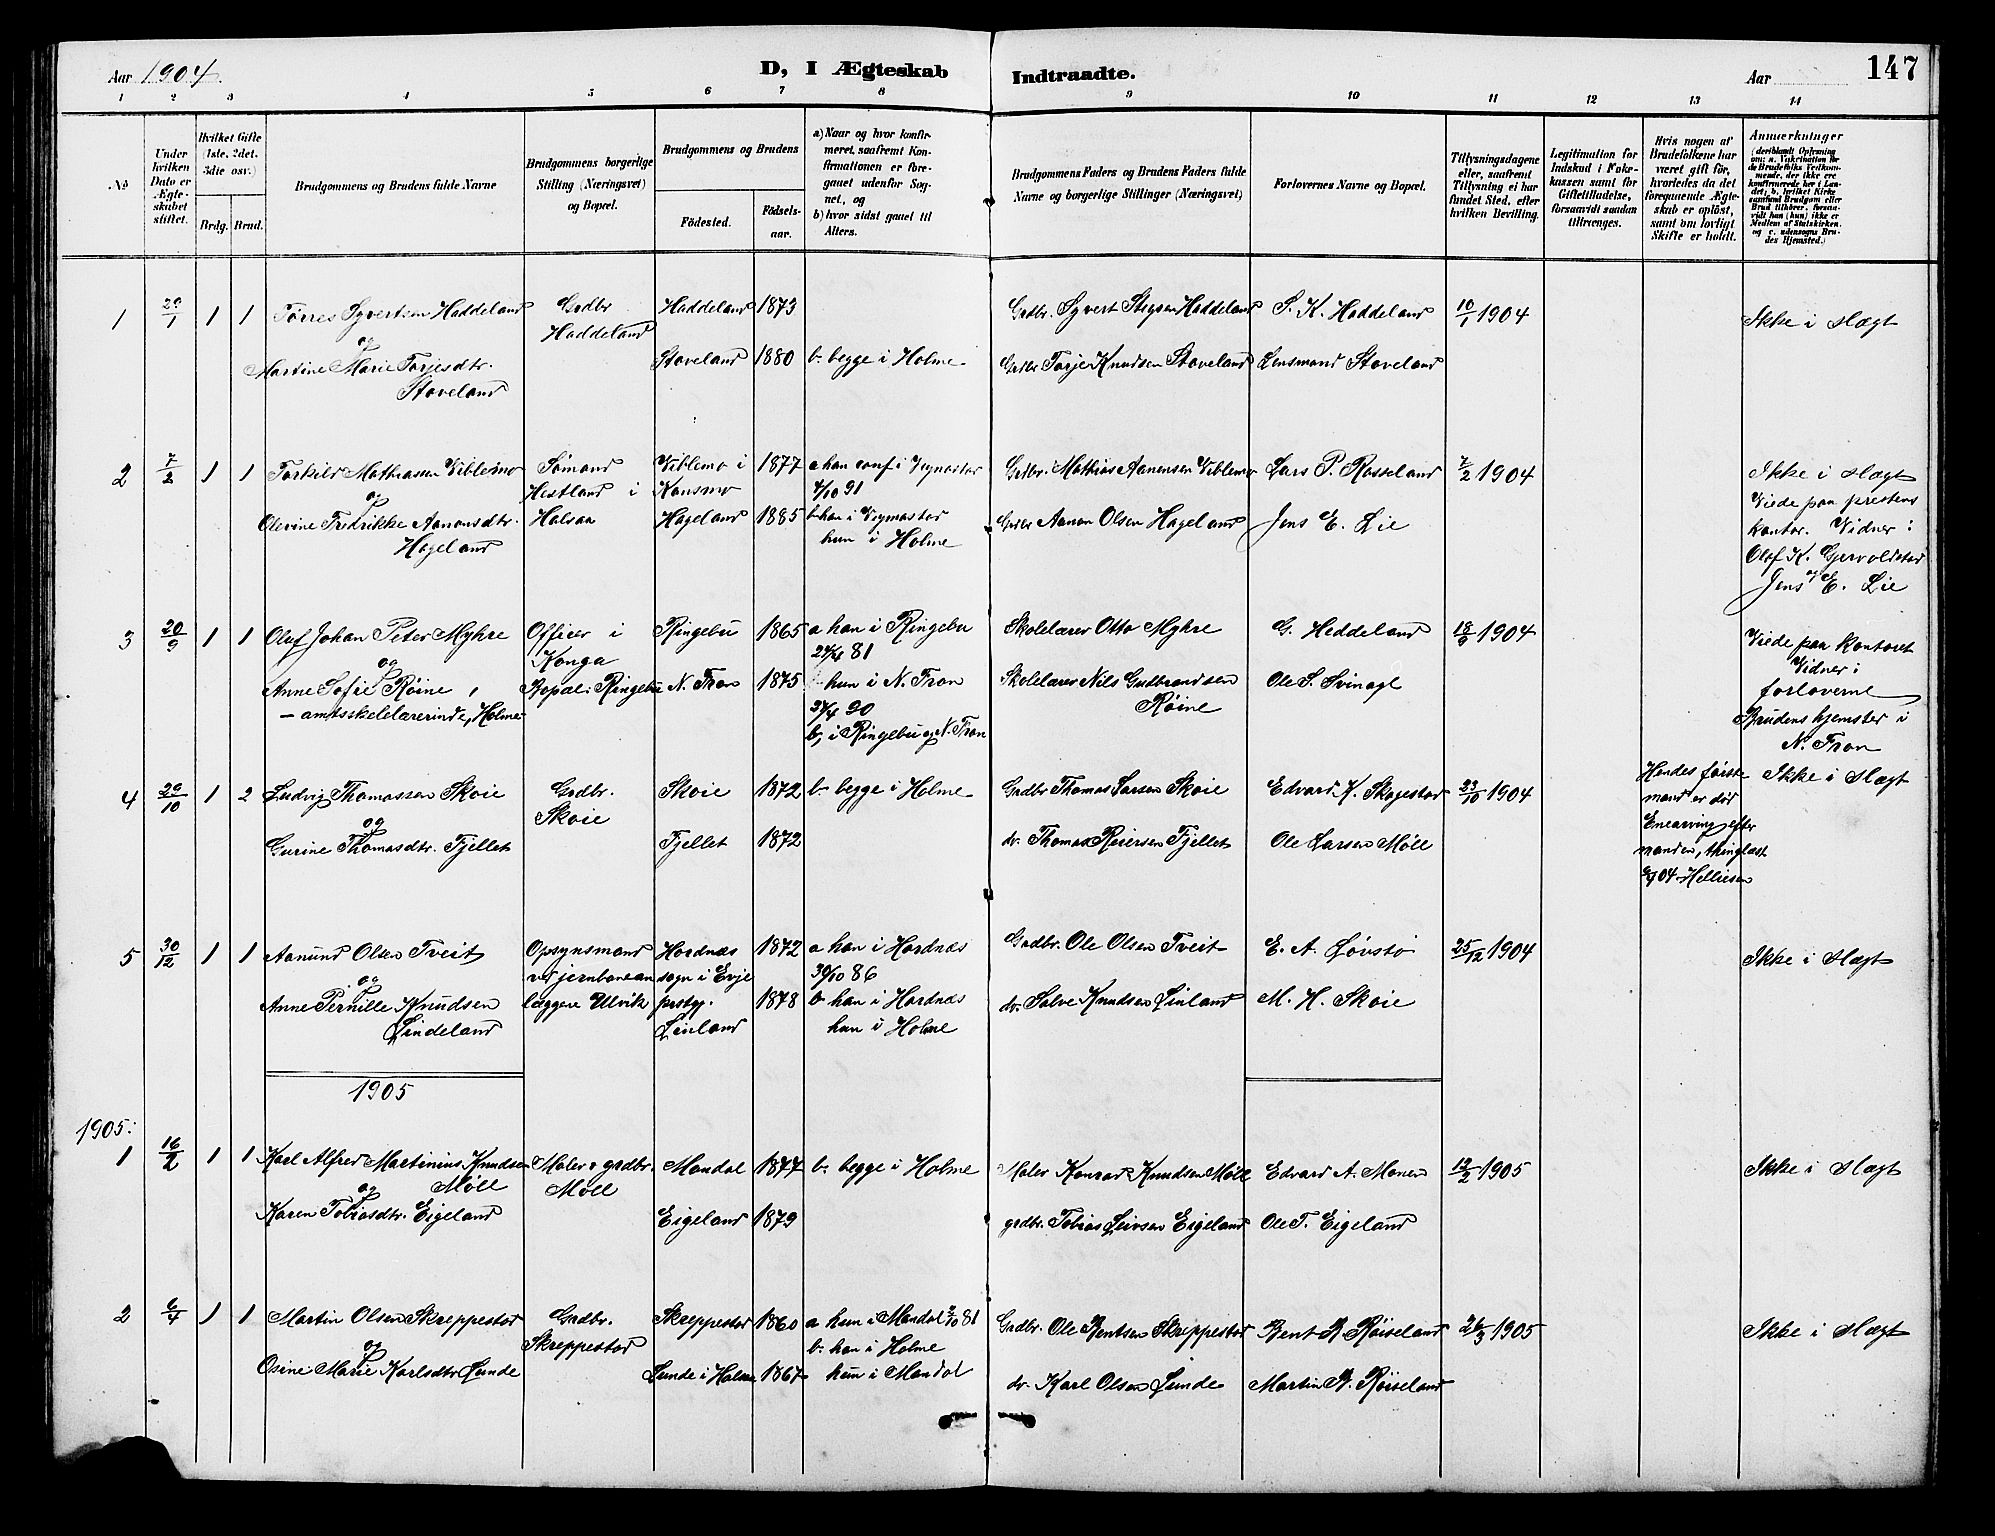 Aar 1904.
D, I Ægteskab Indtraadte.
Aar
147
1 2 3 4 5 6 7 8 9 10 11 12 13 14
No
Under hvilken Dato er Ægteskabet stiftet.
Hvilket Gifte (1ste, 2det, 3die osv.)
Brdg. Brud.
Brudgommens og Brudens fulde Navne
Brudgommens borgerlige Stilling (Næringsvei) og Bopæl.
Brudgommens og Brudens
Födested.
Födselsaar.
a) Naar og hvor konfirmeret, saafremt Konfirmationen er foregaaet udenfor Sognet, og
b) hvor sidst gaaet til Alters.
Brudgommens Faders og Brudens Faders fulde Navne og borgerlige Stillinger (Næringsvei)
Forlovernes Navne og Bopæl.
Tillysningsdagene eller, saafremt Tillysning ei har fundet Sted, efter hvilken Bevilling.
Legitimation for Indskud i Enkekassen samt for Giftetilladelse, forsaavidt saadan tiltrænges.
Hvis nogen af Brudefolkene har været gift för, hvorledes da det foregaaende Ægteskab er oplöst, samt om lovligt Skifte er holdt.
Anmærkninger
1 20/1 1 1 Tørres Syvertsen Haddeland Grdbr Haddeland 1873 Grdbr. Syvert Stysen Haddeland S. K. Haddeland 10/1 1904 Ikke i Slægt
og Haddeland
Martine Marie Torjesdtr. Stoveland 1880 b. begge i Holme Grdbr Torje Knudsen Stoveland Lensmand Stoveland
Stoveland
2 7/2 1 1 Torkild Mathiassen Viblemo Sømand Viblemo i 1877 a han conf i Vigmostad Grdbr. Mathias Aanensen Viblemo Lars P. Rosseland 7/2 1904 Ikke i Slægt
og Hestland i Konsmo 4/10 91 Viede paa prestens
Olevine Fredrikke Aanonsdtr. Halsaa Hageland 1885 b. han i Vigmostad Grdbr Aanon Olsen Hageland Jens E. Lie kontor. Vidner:
Hageland hun i Holme Olaf K. Gjervoldstad
og
Jens E. Lie
3 20/9 1 1 Oluf Johan Peter Myhre Officer i Ringebu 1865 a han i Ringebu Skolelærer Otto Myhre G. Heddeland 18/9 1904 Viede paa kontoret
og Konga 81 Vidner:
Anne Sofie Røine, Bopæl: Ringebu N. Fron 1875 hun i N. Fron Skolelærer Nils Gudbrandsen Ole S. Svinagl forloverne
– amtsskolelærerinde, Holme 90 Røine Brudens hjemsted i
b, i Ringebu og N. Fron N. Fron
4 29/10 1 2 Ludvig Thomassen Skoie Grdbr. Skoie 1872 b. begge i Holme Grdbr Thomas Larsen Skoie Edvard K. Skagestad 23/10 1904 Hendes første Ikke i Slægt
og Skoie mand er død
Gurine Thomasdtr. Fjellet Fjellet 1872 do. Thomas Reiersen Fjellet Ole Larsen Møll Enearving efter
manden, thinglæst
04 Helliesen
5 30/12 1 1 Aanund Olsen Tveit Opsynsmand Hordnæs 1872 a han i Hordnæs Gardbr. Ole Olsen Tveit E. A. Løvstø 25/12 1904 Ikke i Slægt
og ved jernbanean sogn i Evje 30/10 86
Anne Pernille Knudsen læggene Ulvik prstgj. 1878 b. han i Hordnæs do. Salve Knudsen Linland M. H. Skoie
Lindeland Linland hun i Holme
1905
1905:
1 16/2 1 1 Karl Alfred Martinius Knudsen Maler & grdbr. Mandal 1877 b. begge i Holme Maler Konrad Knudsen Møll Edvard A. Monen 12/2 1905 Ikke i Slægt
Møll Møll
og
Karen Tobiasdtr. Eigeland Eigeland 1879 grdbr. Tobias Leivsen Eigeland Ole T. Eigeland
2 6/4 1 1 Martin Olsen Skreppestad Gardbr. Skreppestad 1860 a hun i Mandal 2/10 81 Gardbr. Ole Bentsen Skreppestad Bent B. Røiseland 26/3 1905 Ikke i Slægt
og Skreppestad b. han i Holme
Osine Marie Karlsdtr Lunde Lunde i Holme 1867 hun i Mandal do. Karl Olsen Lunde Martin B. Røiseland